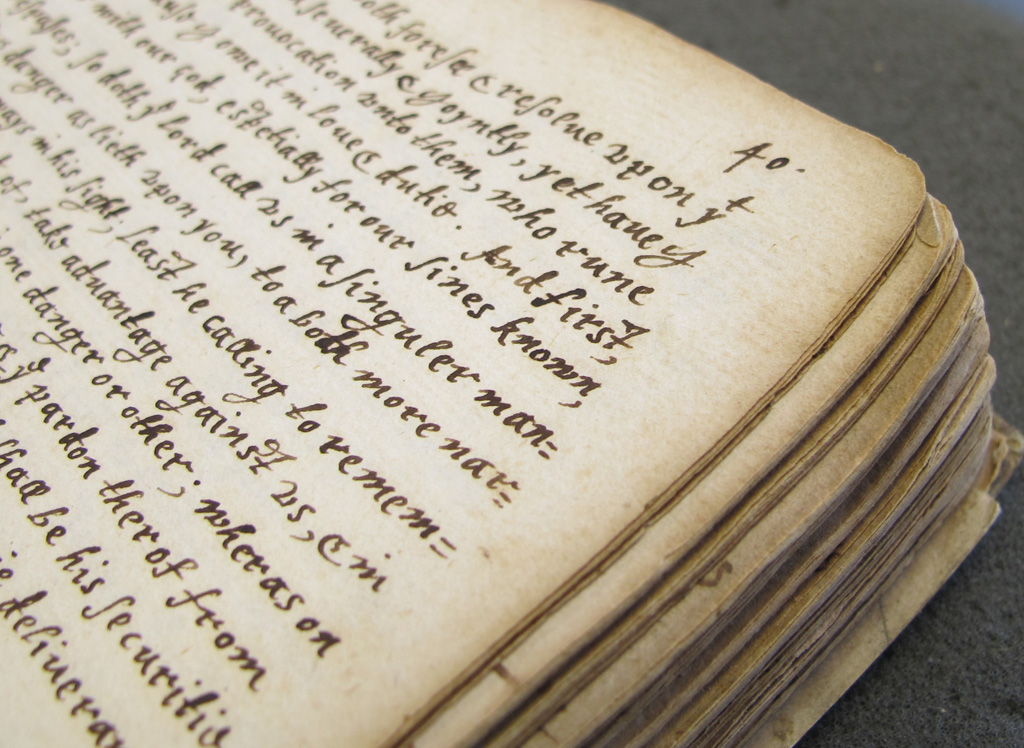 40.
both foresee & resolue vpon yt
seuerally & Ioyntly, yet haue I
prouocation vnto them, who rune
ome it in loue & dutie. And first,
with our God, espetially for our sines known,
so doth ye Lord call vs in a singuler man=
danger as lieth vpon you, to a both more nar=
ways in his sight, least he calling to remem=
take aduantage against vs, & in
one danger or other; wheras on
ye pardon therof from
shall be his securitie
deliueran